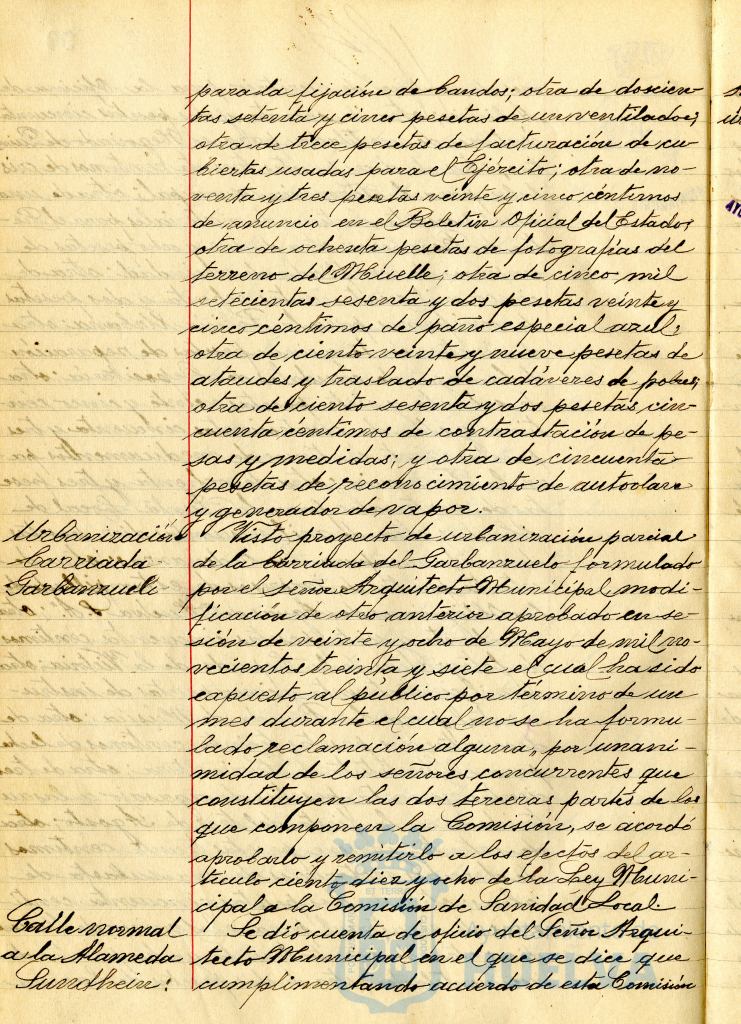 para la fijación de bandos; otra de doscien-
tas setenta y cinco pesetas de un ventilador;
otra de trece pesetas de facturación de cu-
biertas usadas para el Ejército; otra de no-
venta y tres pesetas veinte y cinco céntimos
de anuncio en el Boletín Oficial del Estado;
otra de ochenta pesetas de fotografías del
terreno del Muelle; otra de cinco mil
setecientas sesenta y dos pesetas veinte y
cinco céntimos de paño especial azul;
otra de ciento veinte y nueve pesetas de
ataudes y traslado de cadáveres de pobres;
otra de ciento sesenta y dos pesetas cin-
cuenta céntimos de contrastación de pe-
sas y medidas; y otra de cincuenta
pesetas de reconocimiento de autoclave
y generador de vapor.
Urbanización
Barriada
Garbanzuelo
Visto proyecto de urbanización parcial
de la barriada del Garbanzuelo formulado
por el señor Arquitecto Municipal modi-
ficación de otro anterior aprobado en se-
sión de veinte y ocho de Mayo de mil no-
vecientos treinta y siete el cual ha sido
expuesto al público por término de un
mes durante el cual no se ha formu-
lado reclamación alguna, por unani-
midad de los señores concurrentes que
constituyen las dos terceras partes de los
que componen la Comisión, se acordó
aprobarlo y remitirlo a los efectos del ar-
tículo ciento diez y ocho de la Ley Muni-
cipal a la Comisión de Sanidad Local.
Calle normal
a la Alameda
Sundhein:
Se dió cuenta de oficio del Señor Arqui-
tecto Municipal en el que se dice que
cumplimentando acuerdo de esta Comisión